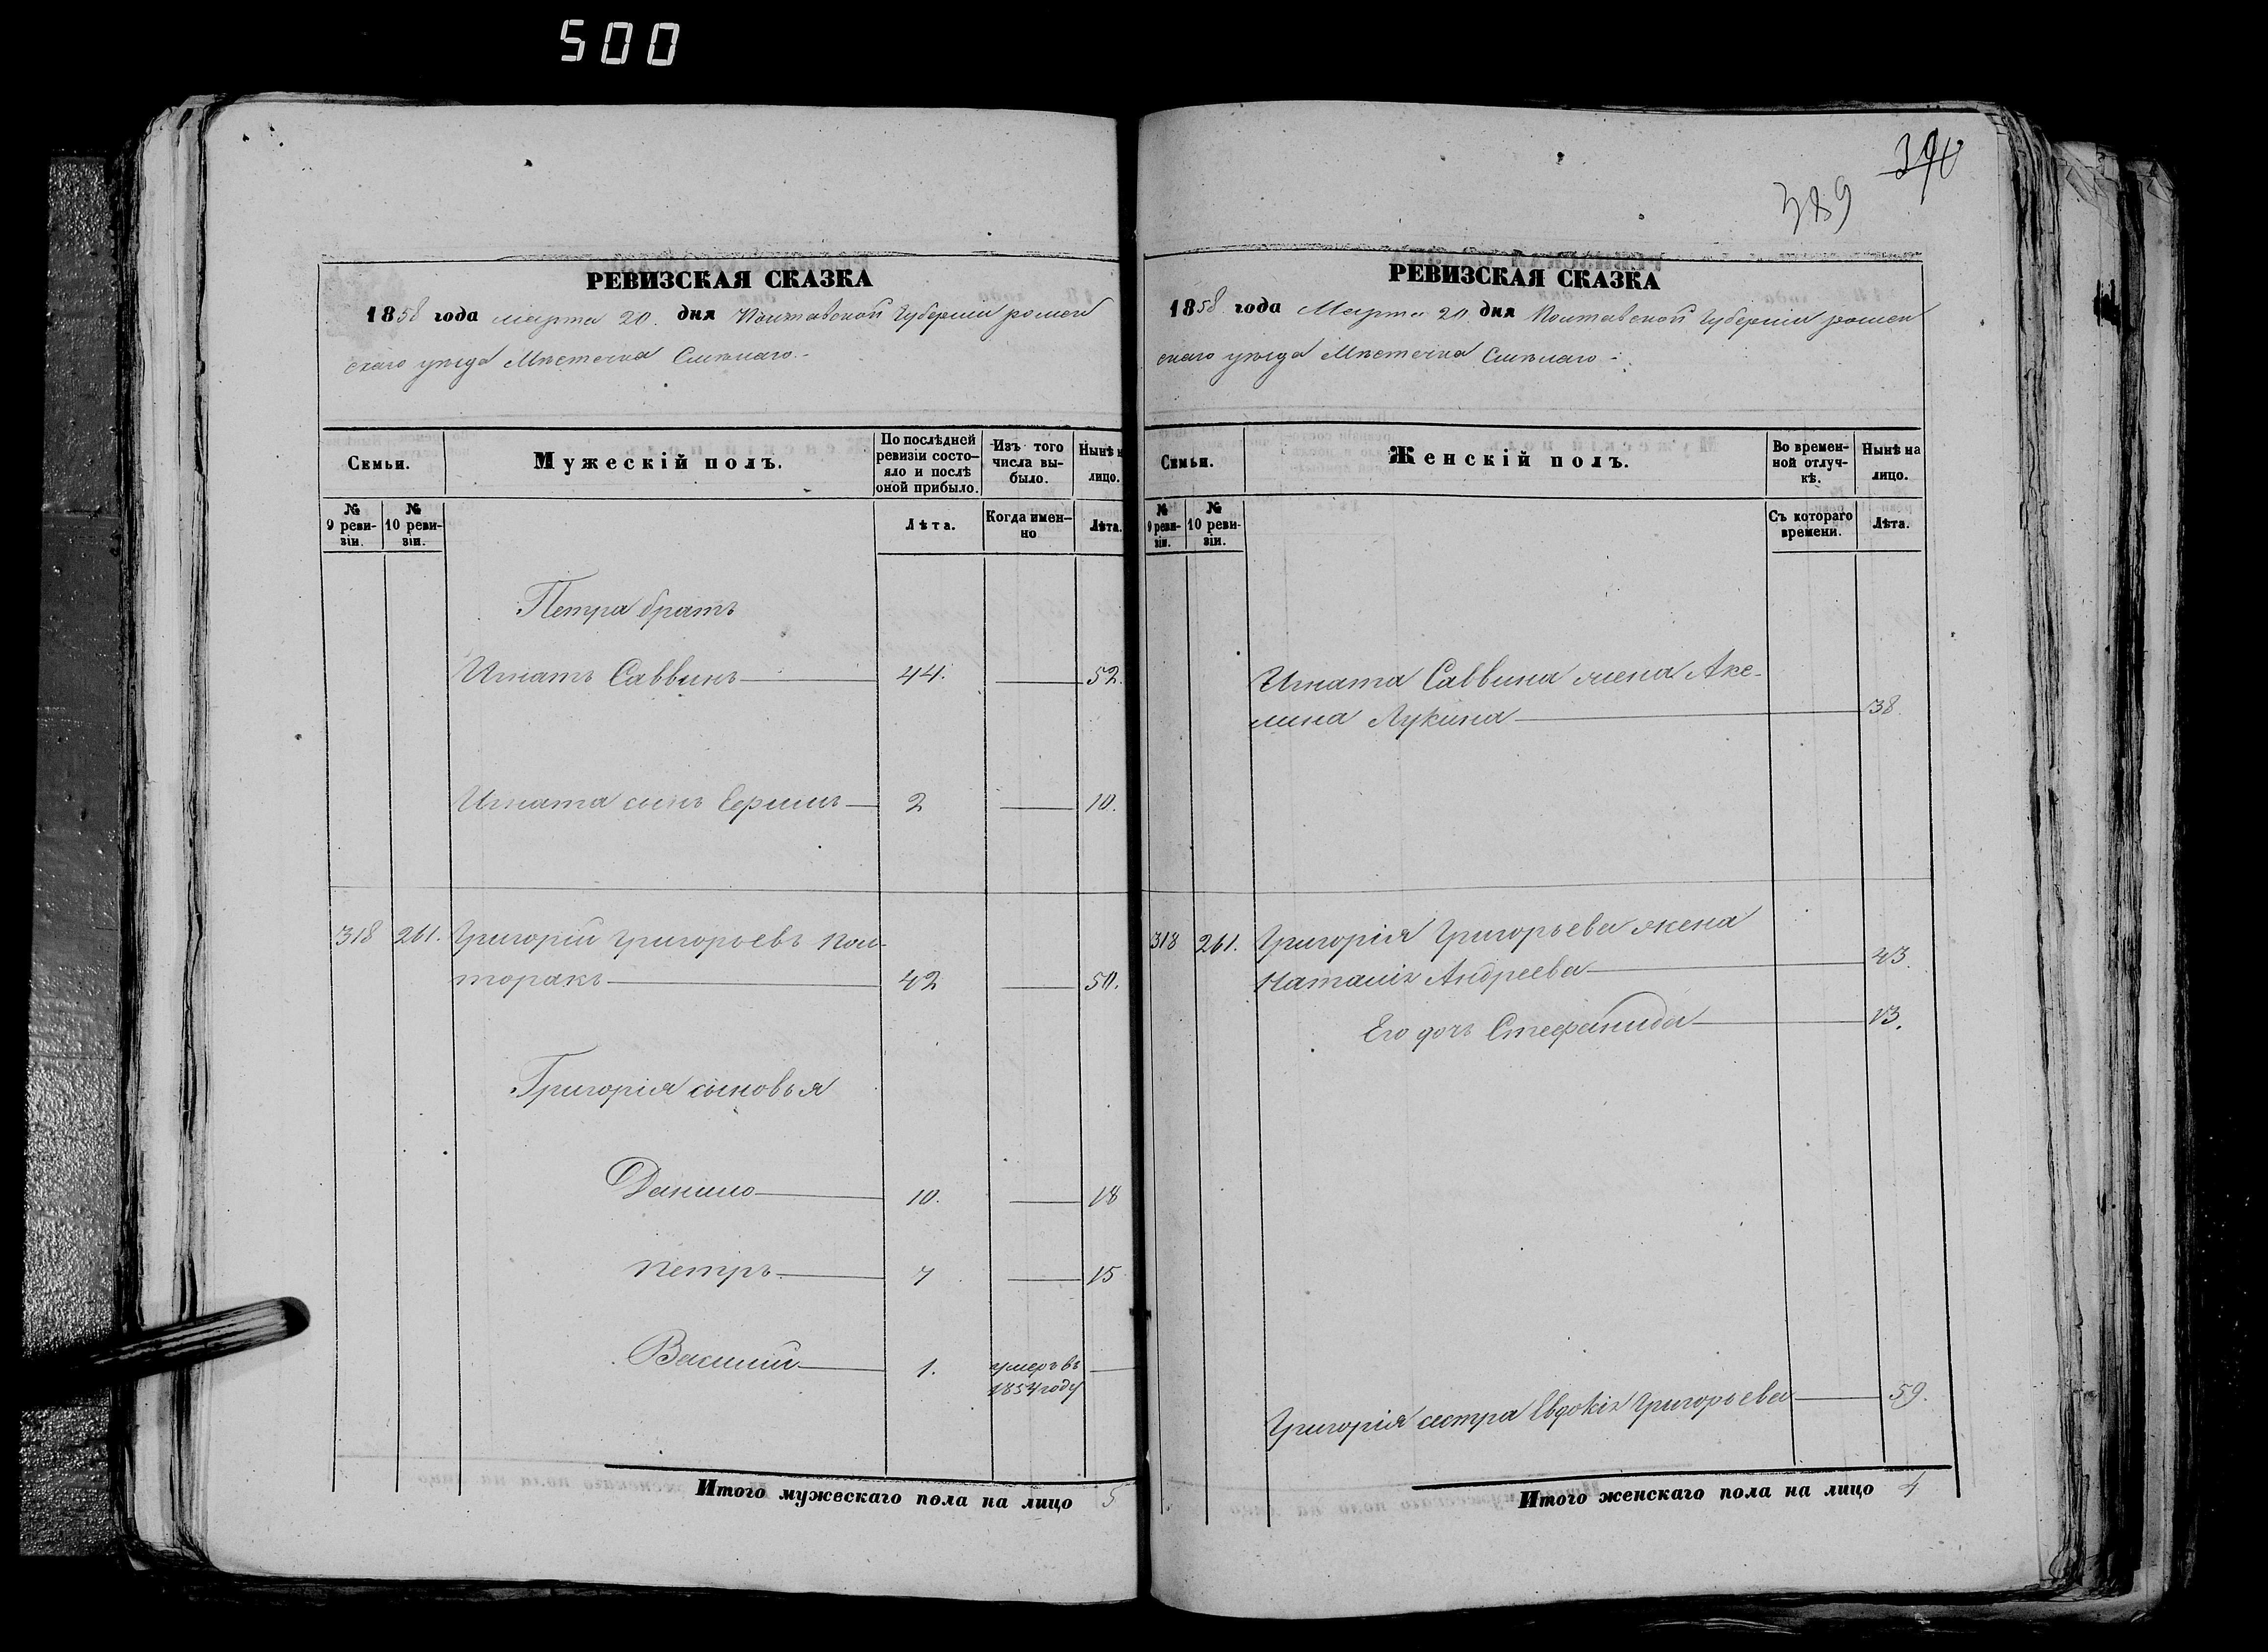 500
390
389
РЕВИЗСКАЯ СКАЗКА
1858 года марта 20. дня Полтавской Губернии ромен
скаго уезда Местечка Смѣлаго
Семьи.
Мужескій полъ.
По послѣдней ревизіи состо-
яло и послѣ оной прибыло.
Изъ того числа вы-
было.
Нынѣ на лицо.
№ 9 реви-
зіи.
№ 10 реви-
зіи.
Лѣта.
Когда имен-
но
Лѣта.
Петра братъ
Игнатъ Саввинъ 44. 52.
Игната синъ 2 10.
318 261. Григорий Григорьевъ Пол-
торакъ 42 50.
Григорія сыновья
Данило 10. 18
Петръ 7 15
Василий 1. умеръ въ
1854 году
Итого мужескаго пола на лицо 5
РЕВИЗСКАЯ СКАЗКА
1858 года Марта 20. дня Полтавской Губерніи ромен
скаго уѣзда Мѣстечка Смѣлаго
Семьи.
Женскій полъ.
Во времен-
ной отлуч-
кѣ.
Нынѣ на лицо.
№ 9 реви-
зіи.
№ 10 реви-
зіи.
Съ котораго времени.
Лѣта.
Игната Саввина жена Аке-
лина Лукина 38
318 261. Григорія Григорьева жена
Наталія Андреева 43.
Его дочь Стефанида 13.
Григорія сестра Евдокія Григорьева 59.
Итого женскаго пола на лицо 4